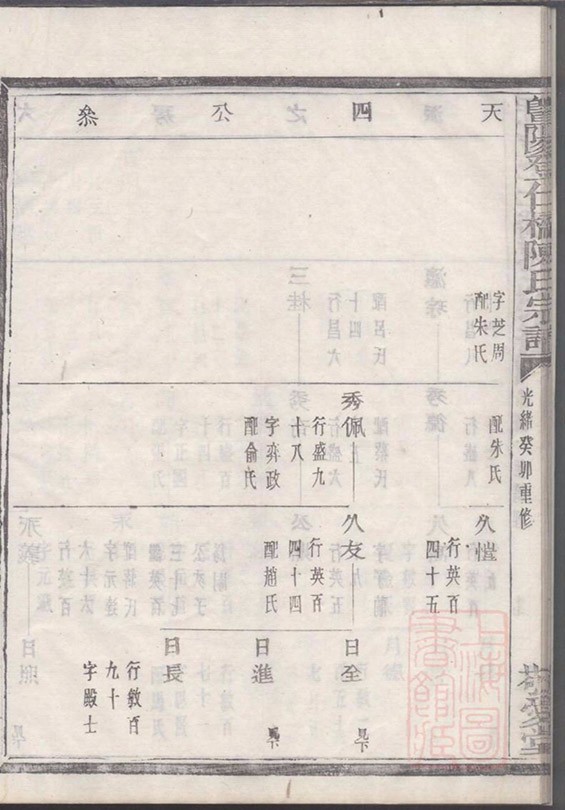 暨陽登仕橋陳氏宗譜
光緒癸卯重修
天四公叅
字芝周
配朱氏
配朱氏
秀佩
行盛九
十八
字弈政
配俞氏
久愷
行英百
四十五
久友
行英百
四十四
配趙氏
日全
見下
日進
見下
日長
行敎百
九十
字殿士
上海圖
書館藏